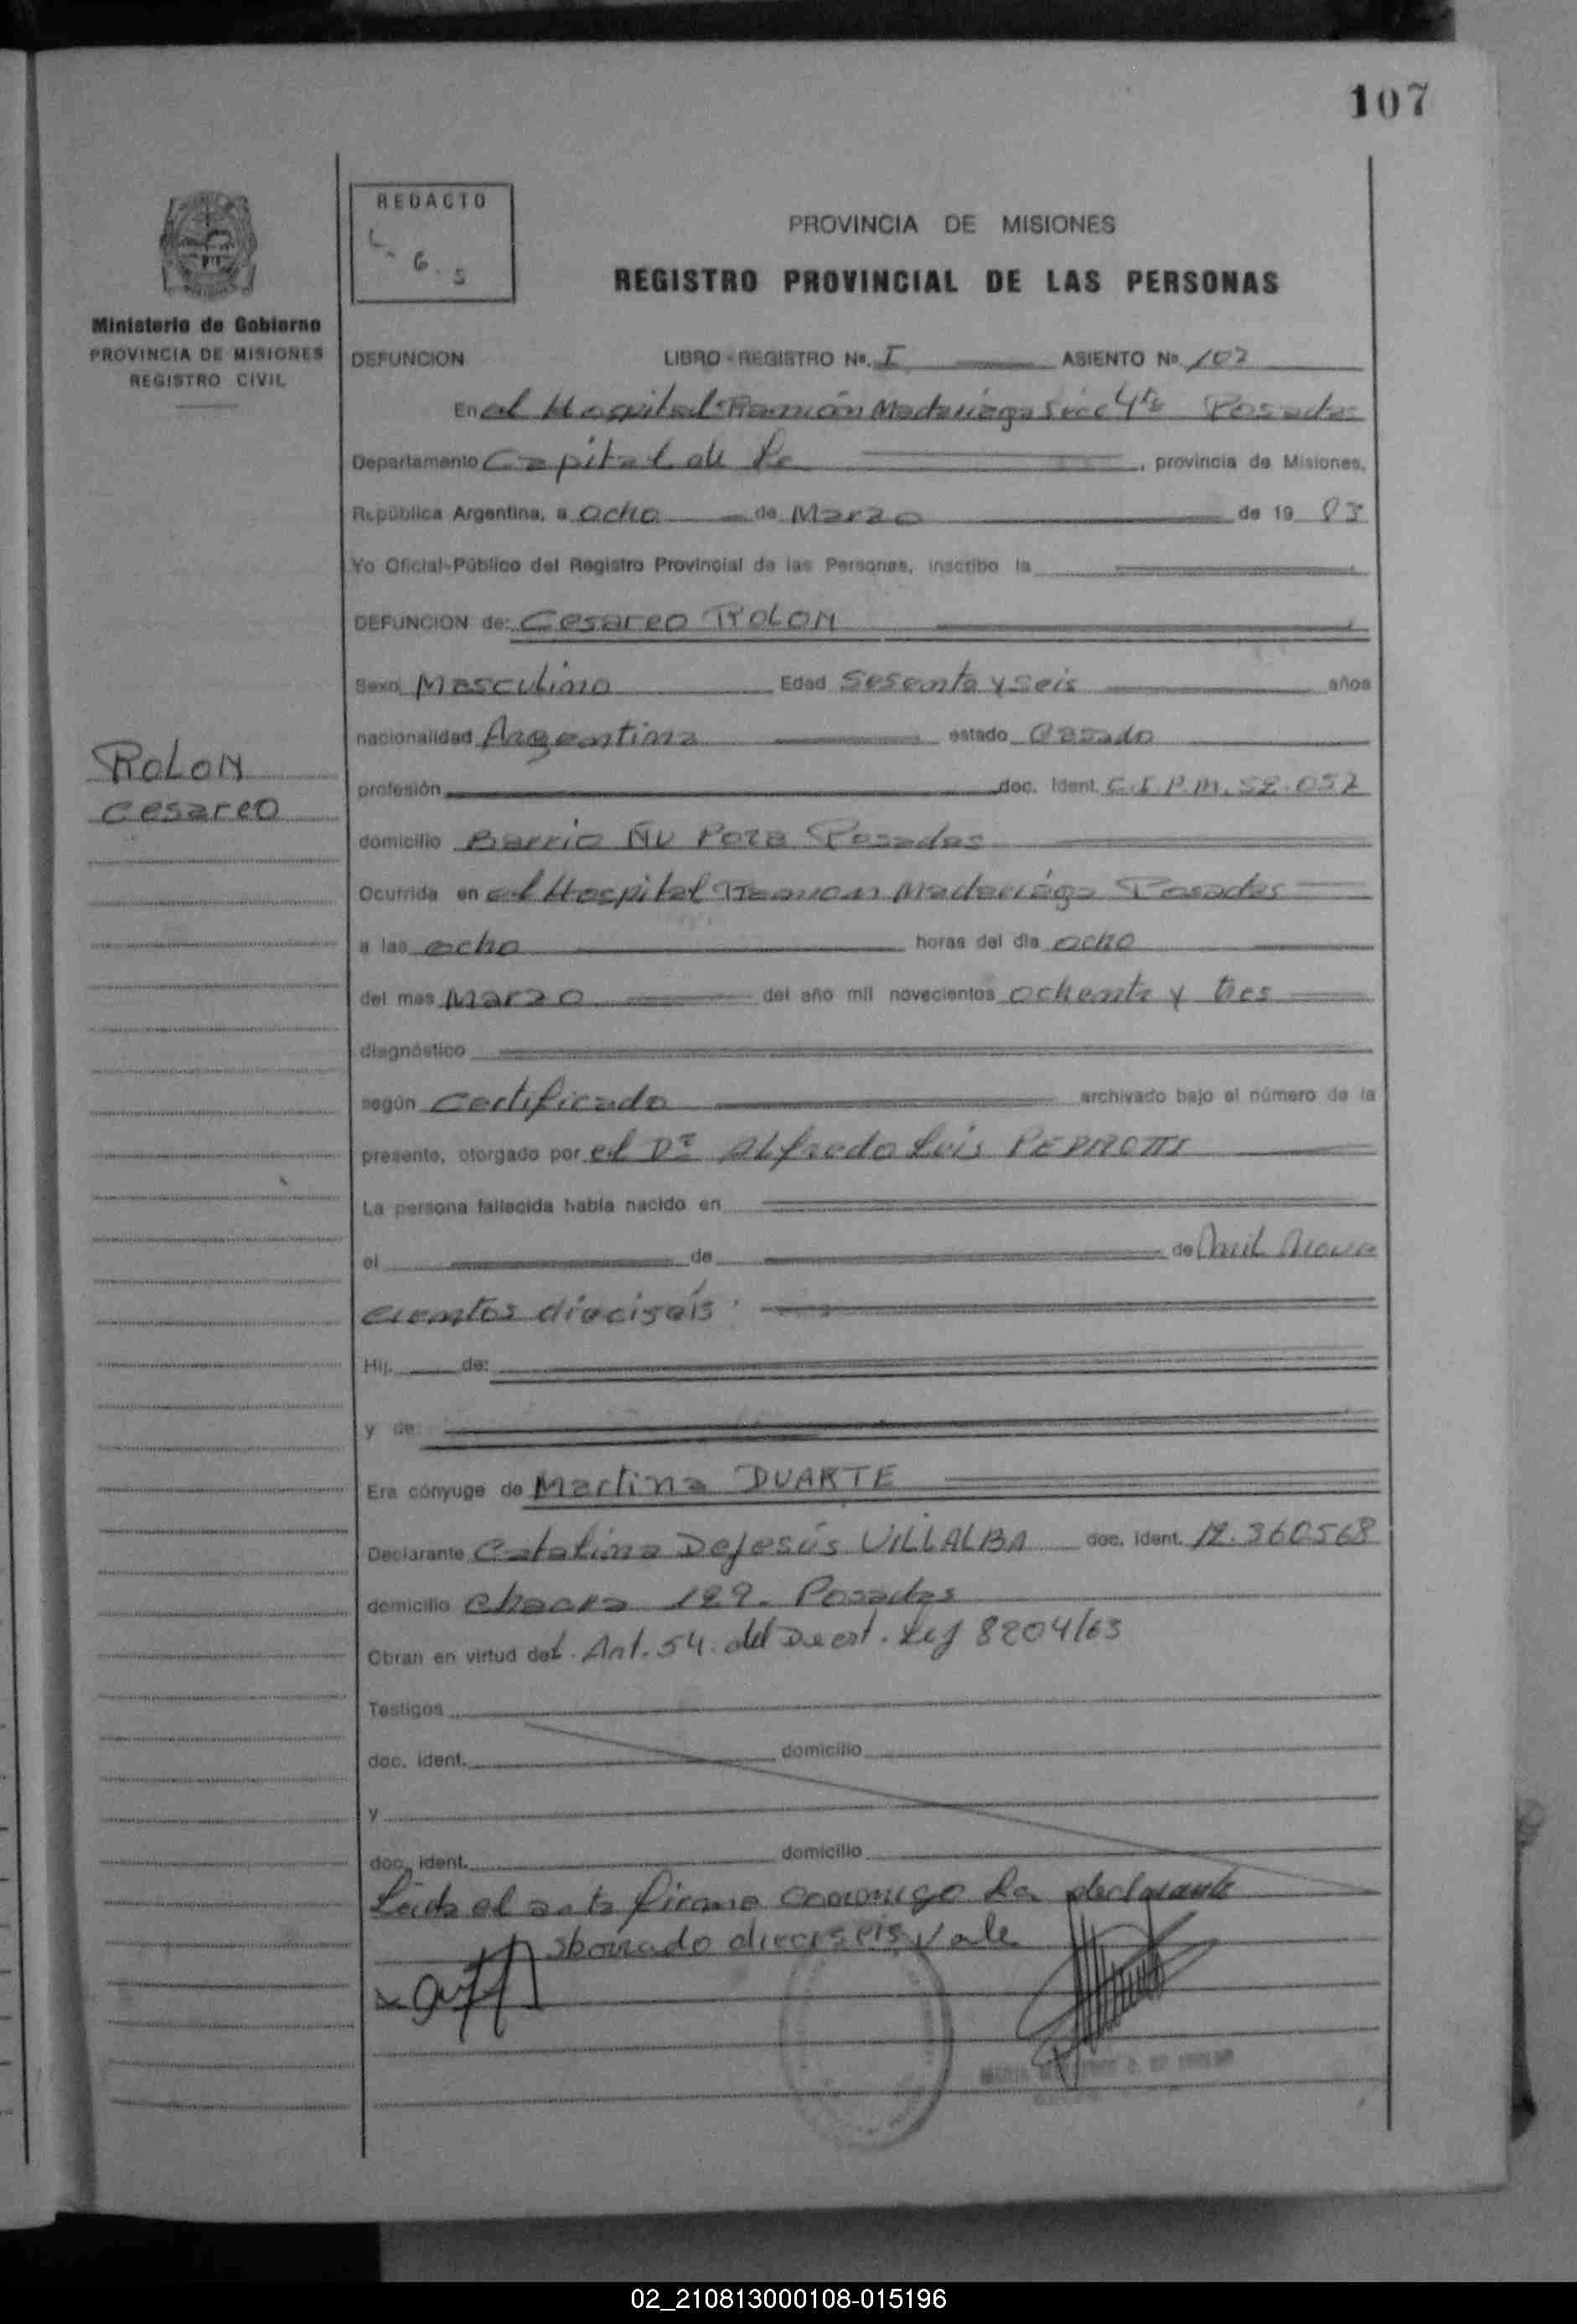 107
REDACTO
L. G. S
PROVINCIA DE MISIONES
REGISTRO PROVINCIAL DE LAS PERSONAS
Ministerio de Gobierno
PROVINCIA DE MISIONES
REGISTRO CIVIL
DEFUNCION LIBRO - REGISTRO No. I ASIENTO No. 107
En el Hospital Ramón Madariaga Secc 4ta Posadas
Departamento Capital de la, provincia de Misiones,
República Argentina, a ocho de Marzo de 19 83
Yo Oficial Público del Registro Provincial de las Personas, inscribo la
DEFUNCION de: Cesareo ROLON
Sexo Masculino Edad Sesenta y seis años
nacionalidad Argentina estado Casado
ROLON
Cesareo
profesión doc. Ident. C.I.P.M. 52.052
domicilio Barrio Ñu Pora Posadas
Ocurrida en el Hospital Ramon Madariága Posadas
a las ocho horas del día ocho
del mes Marzo del año mil novecientos ochenta y tres
diagnóstico
según certificado archivado bajo el número de la
presente, otorgado por el Dr Alfredo Luis
La persona fallecida había nacido en
el de de mil nove
cientos dieciséis
Hij. de:
y de:
Era cónyuge de Martina DUARTE
Declarante Catalina DeJesús VILLALBA doc. ident. 12.360568
domicilio Chacra 129. Posadas
Obran en virtud del. Art. 54. del Decrt. Ley 8204/63
Testigos
doc. ident. domicilio
y
doc. ident. domicilio
Leída el acta firma conmigo la declarante
sborrado dieciseis vale
02_210813000108-015196